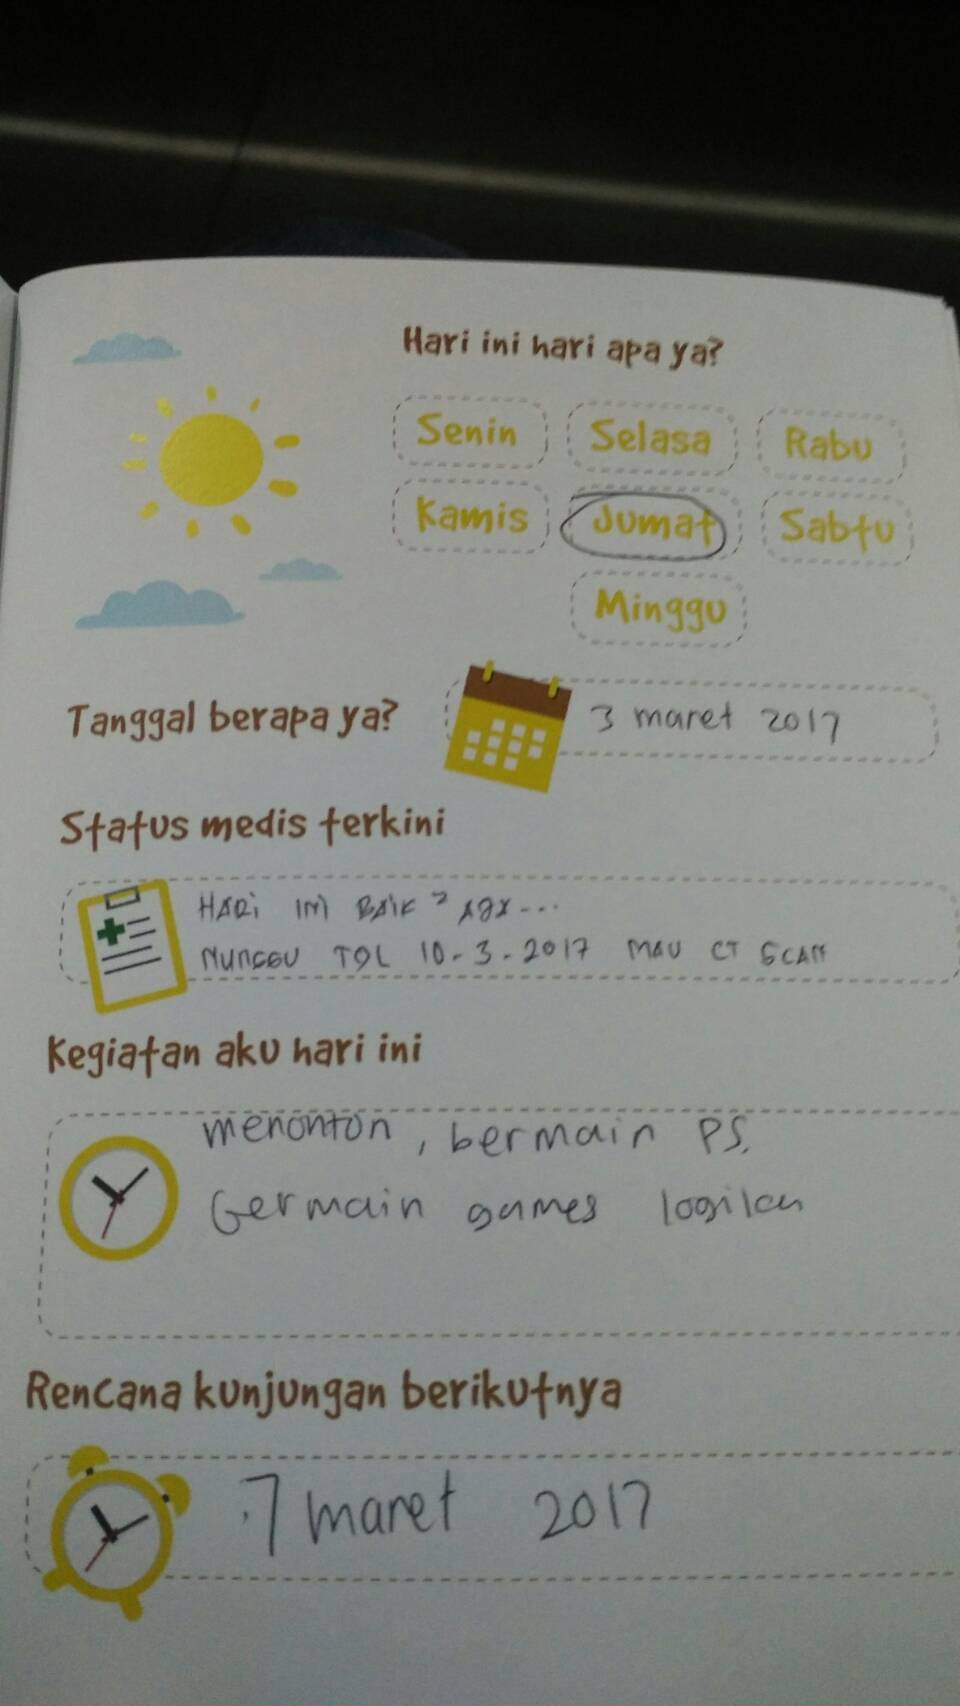 Hari ini hari apa ya?
Senin Selasa Rabu
Kamis Jumat Sabtu
Minggu
Tanggal berapa ya? 3 maret 2017
Status medis terkini
HARI INI BAIK 2
NUNGGU TGL 10-3-2017 MAU CT SCAN
Kegiatan aku hari ini
menonton, bermain PS.
Germain games
Rencana kunjungan berikutnya
7 maret 2017